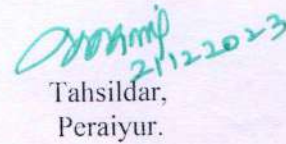 21122023
Tahsildar,
Peraiyur.